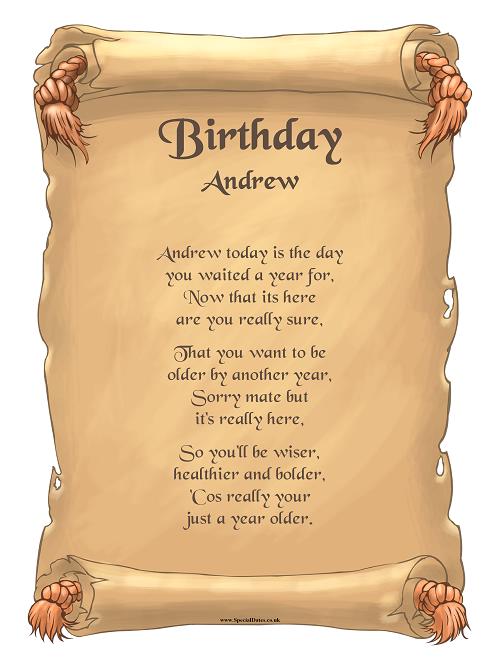 Birthday
Andrew
Andrew today is the day
you waited a year for,
Now that its here
are you really sure,
That you want to be
older by another year,
Sorry mate but
it's really here,
So you'll be wiser,
healthier and bolder,
'Cos really your
just a year older.
www.SpecialDates.co.uk